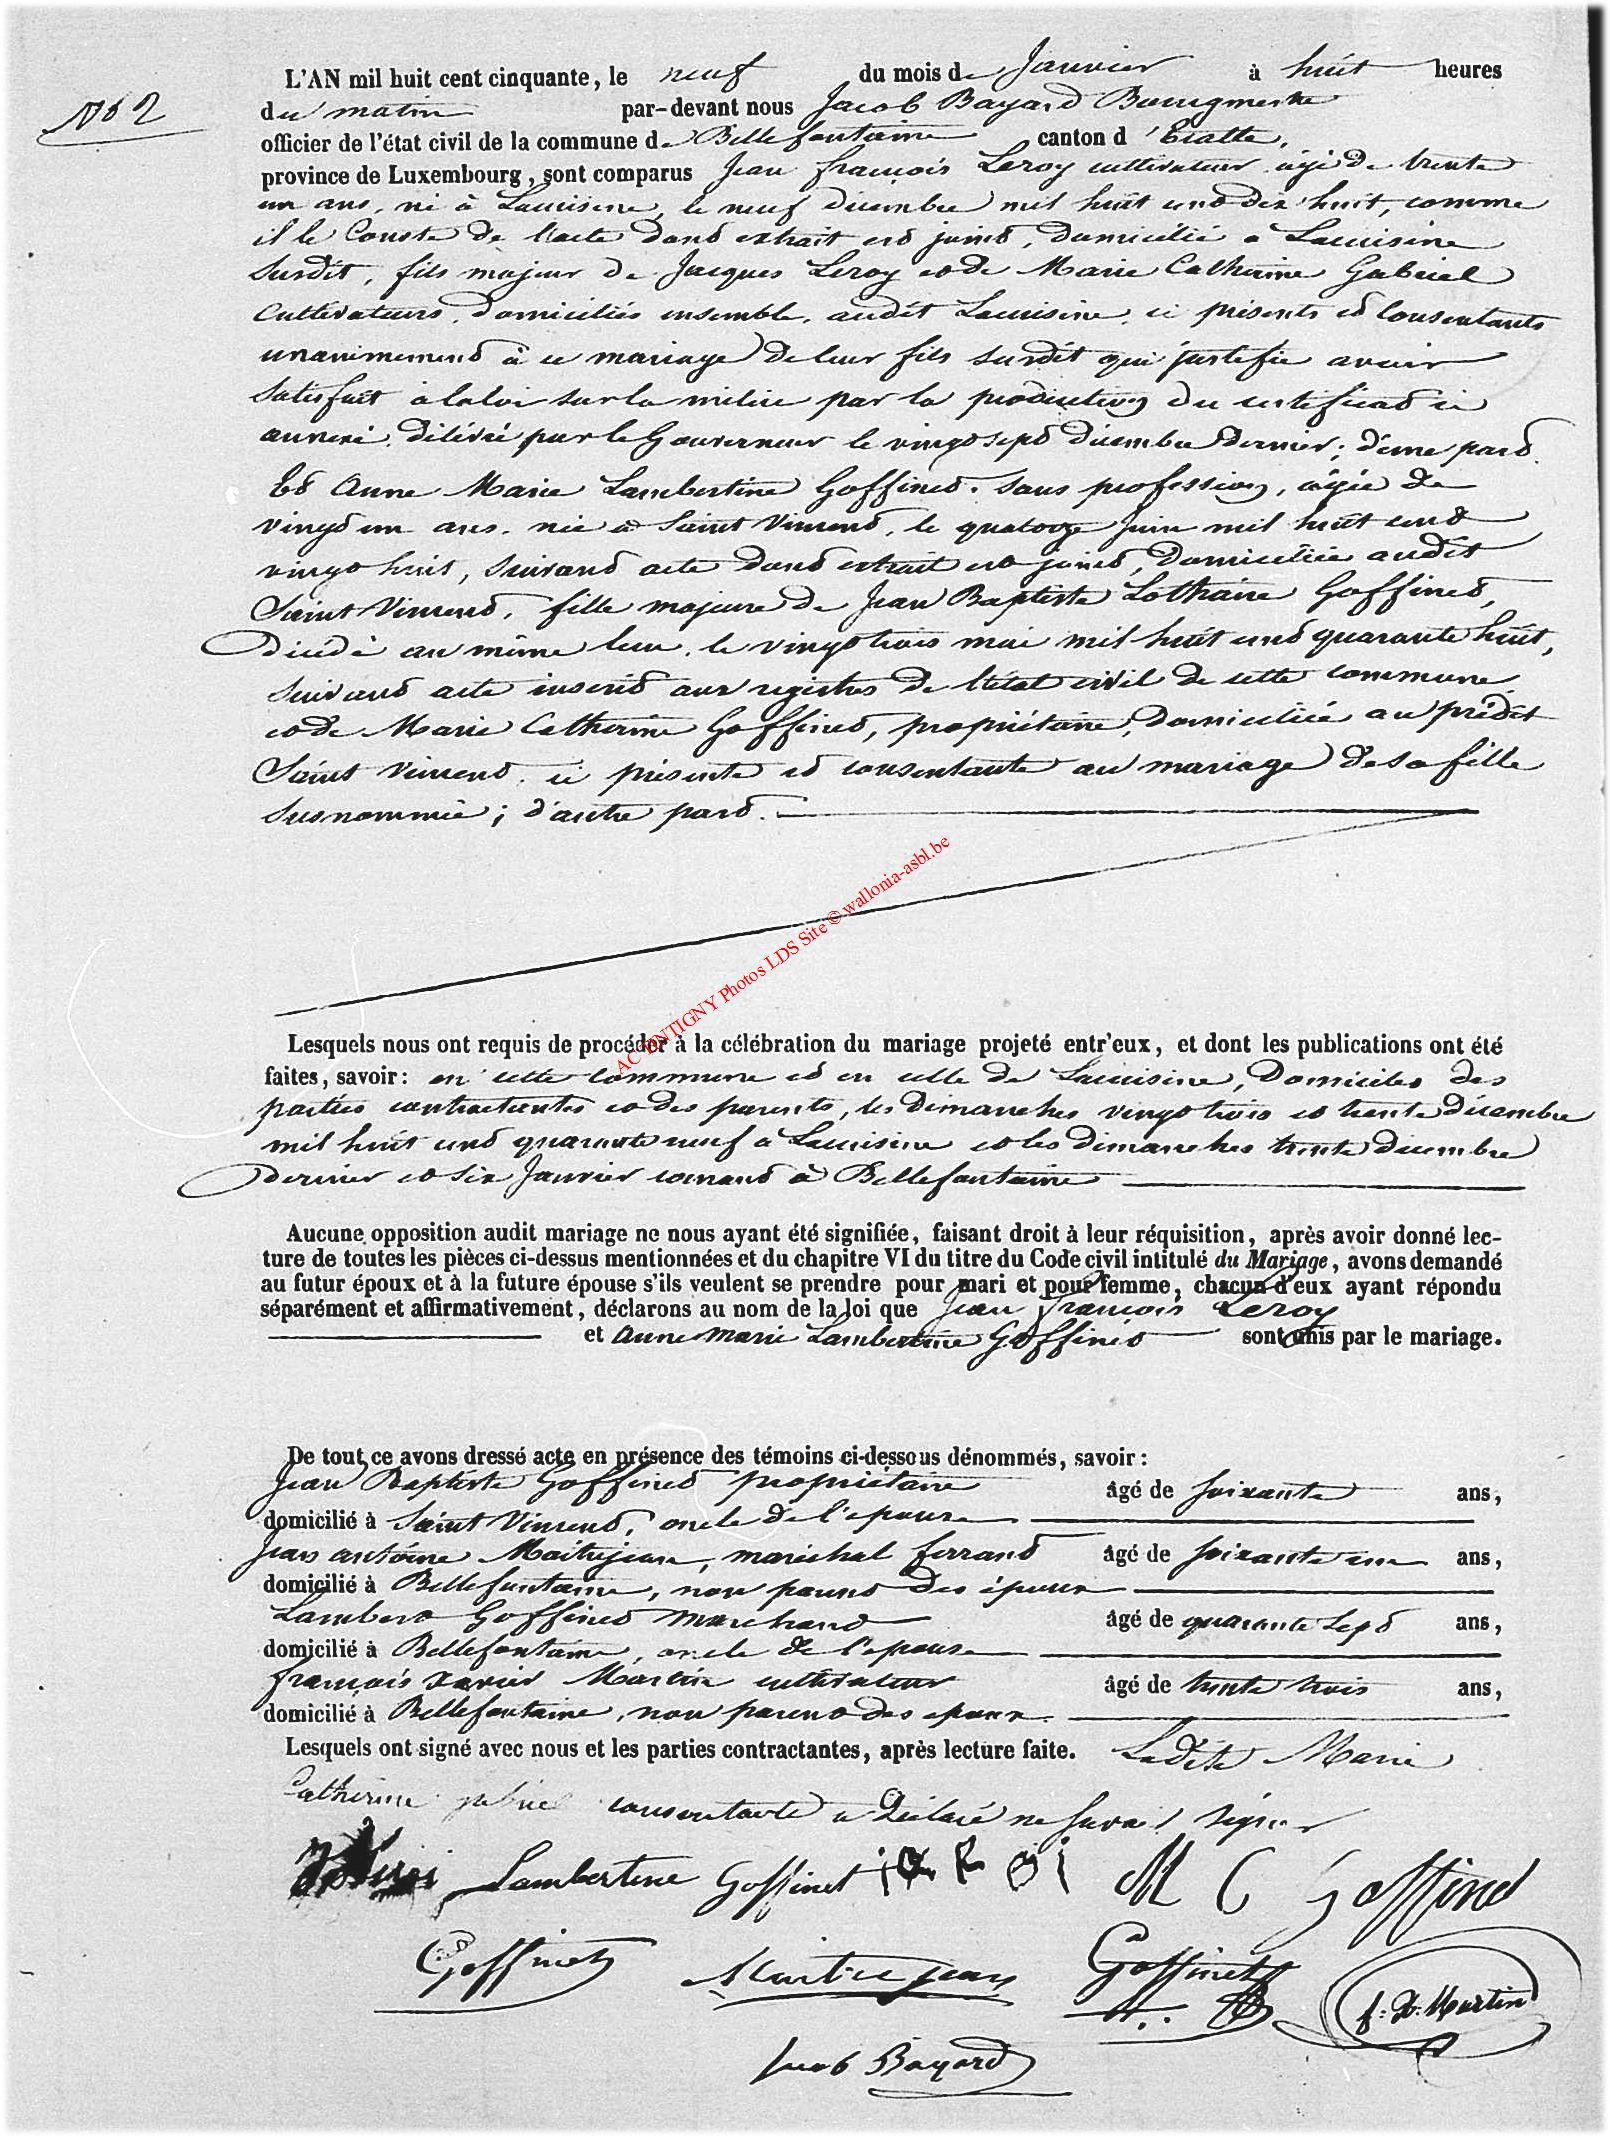 N° 2
L'AN mil huit cent cinquante, le neuf du mois de Janvier à huit heures
du matin par-devant nous Jacob Bayard Bourgmestre
officier de l'état civil de la commune de Bellefontaine canton d'Etalle,
province de Luxembourg, sont comparus Jean françois Leroy cultivateur âgé de trente
un ans, né à Lacuisine, le neuf décembre mil huit cent dix huit, comme
il le Conste de l'acte dont extrait est joint, domicilié à Lacuisine
Susdit, fils majeur de Jacques Leroy et de Marie Catherine Gabriel
Cultivateurs, domiciliés ensemble, audit Lacuisine, ci présents et Consentants
unanimement à ce mariage de leur fils susdit qui justifie avoir
Satisfait à la loi sur la milice par la production du certificat ci
annexé, délivré par le Gouverneur le vingt sept décembre dernier; d'une part.
Et Anne Marie Lambertine Goffinet, sans profession, âgée de
vingt un ans, née à Saint Vincent, le quatorze Juin mil huit cent
vingt huit, suivant acte dont extrait est joint, domiciliée audit
Saint Vincent, fille majeure de Jean Baptiste Lothaire Goffinet,
Décédé au même lieu, le vingt trois mai mil huit cent quarante huit,
suivant acte inscrit aux registres de l'état civil de cette commune
et de Marie Catherine Goffinet, propriétaire, domiciliée au prédit
Saint Vincent, ci présente et consentante au mariage de sa fille
susnommée; d'autre part.
AC TINTIGNY Photos LDS Site © wallonia-asbl.be
Lesquels nous ont requis de procéder à la célébration du mariage projeté entr'eux, et dont les publications ont été
faites, savoir: en cette commune et en celle de Lacuisine, Domiciles des
parties contractantes et des parents, les dimanches vingt trois et trente décembre
mil huit cent quarante neuf à Lacuisine et les dimanches trente décembre
dernier et six Janvier courant à Bellefontaine
Aucune opposition audit mariage ne nous ayant été signifiée, faisant droit à leur réquisition, après avoir donné lec-
ture de toutes les pièces ci-dessus mentionnées et du chapitre VI du titre du Code civil intitulé du Mariage, avons demandé
au futur époux et à la future épouse s'ils veulent se prendre pour mari et pour femme, chacun d'eux ayant répondu
séparément et affirmativement, déclarons au nom de la loi que Jean françois Leroy
et Anne marie Lambertine Goffinet sont unis par le mariage.
De tout ce avons dressé acte en présence des témoins ci-dessous dénommés, savoir:
Jean Baptiste Goffinet propriétaire âgé de soixante ans,
domicilié à Saint Vincent, oncle de l'épouse
Jean antoine Maitrejean, maréchal ferrant âgé de soixante un ans,
domicilié à Bellefontaine, non parent des époux
Lambert Goffinet marchand âgé de quarante sept ans,
domicilié à Bellefontaine, oncle de l'épouse
françois xavier Martin cultivateur âgé de trente trois ans,
domicilié à Bellefontaine, non parent des époux.
Lesquels ont signé avec nous et les parties contractantes, après lecture faite. Ladite Marie
Catherine gabriel consentante a Déclaré ne savoir signer
Lambertine Goffinet M C Goffinet
Goffinet Maitrejean Goffinet f: X: Martin
Jacob Bayard